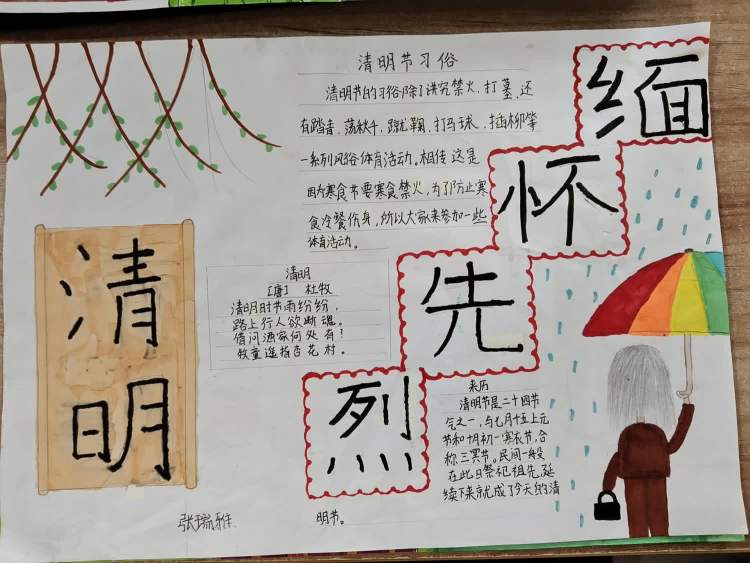 清明节习俗
清明节的习俗除了讲究禁火、打墓,还
有踏青、荡秋千、蹴鞠、打马球、插柳等
一系列风俗体育活动。相传这是
因为寒食节要寒食禁火,为了防止寒
食冷餐伤身,所以大家来参加一些
体育活动。
缅
怀
先
烈
清
明
清明
[唐] 杜牧
清明时节雨纷纷,
路上行人欲断魂。
借问酒家何处有!
牧童遥指杏花村。
来历
清明节是二十四节
气之一,与七月十五上元
节和十月初一寒衣节,合
称三冥节。民间一般
在此日祭祀祖先,延
续下来就成了今天的清
明节。
张瑞雅